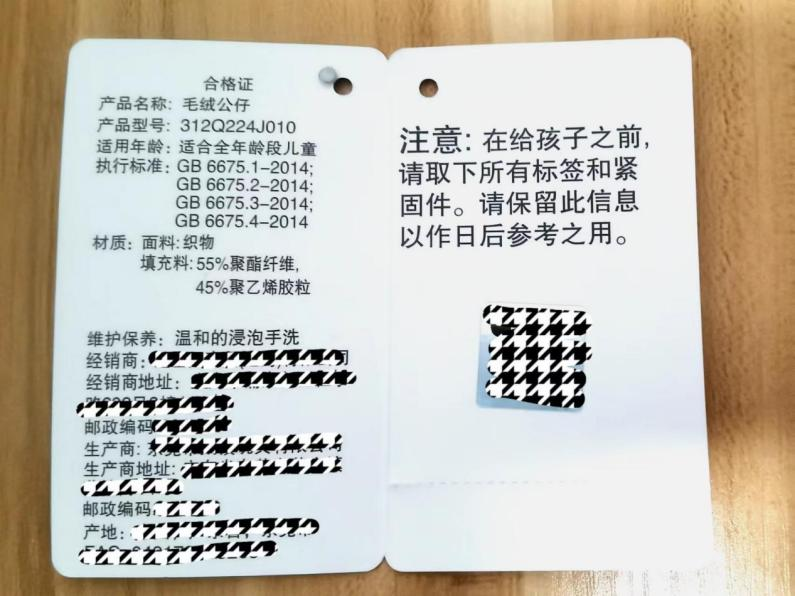 合格证
产品名称: 毛绒公仔
产品型号: 312Q224J010
适用年龄: 适合全年龄段儿童
执行标准: GB 6675.1-2014;
GB 6675.2-2014;
GB 6675.3-2014;
GB 6675.4-2014
材质: 面料: 织物
填充料: 55%聚酯纤维,
45%聚乙烯胶粒
维护保养: 温和的浸泡手洗
经销商:
经销商地址:
邮政编码
生产商:
生产商地址:
邮政编码
产地:
注意: 在给孩子之前,
请取下所有标签和紧
固件。请保留此信息
以作日后参考之用。